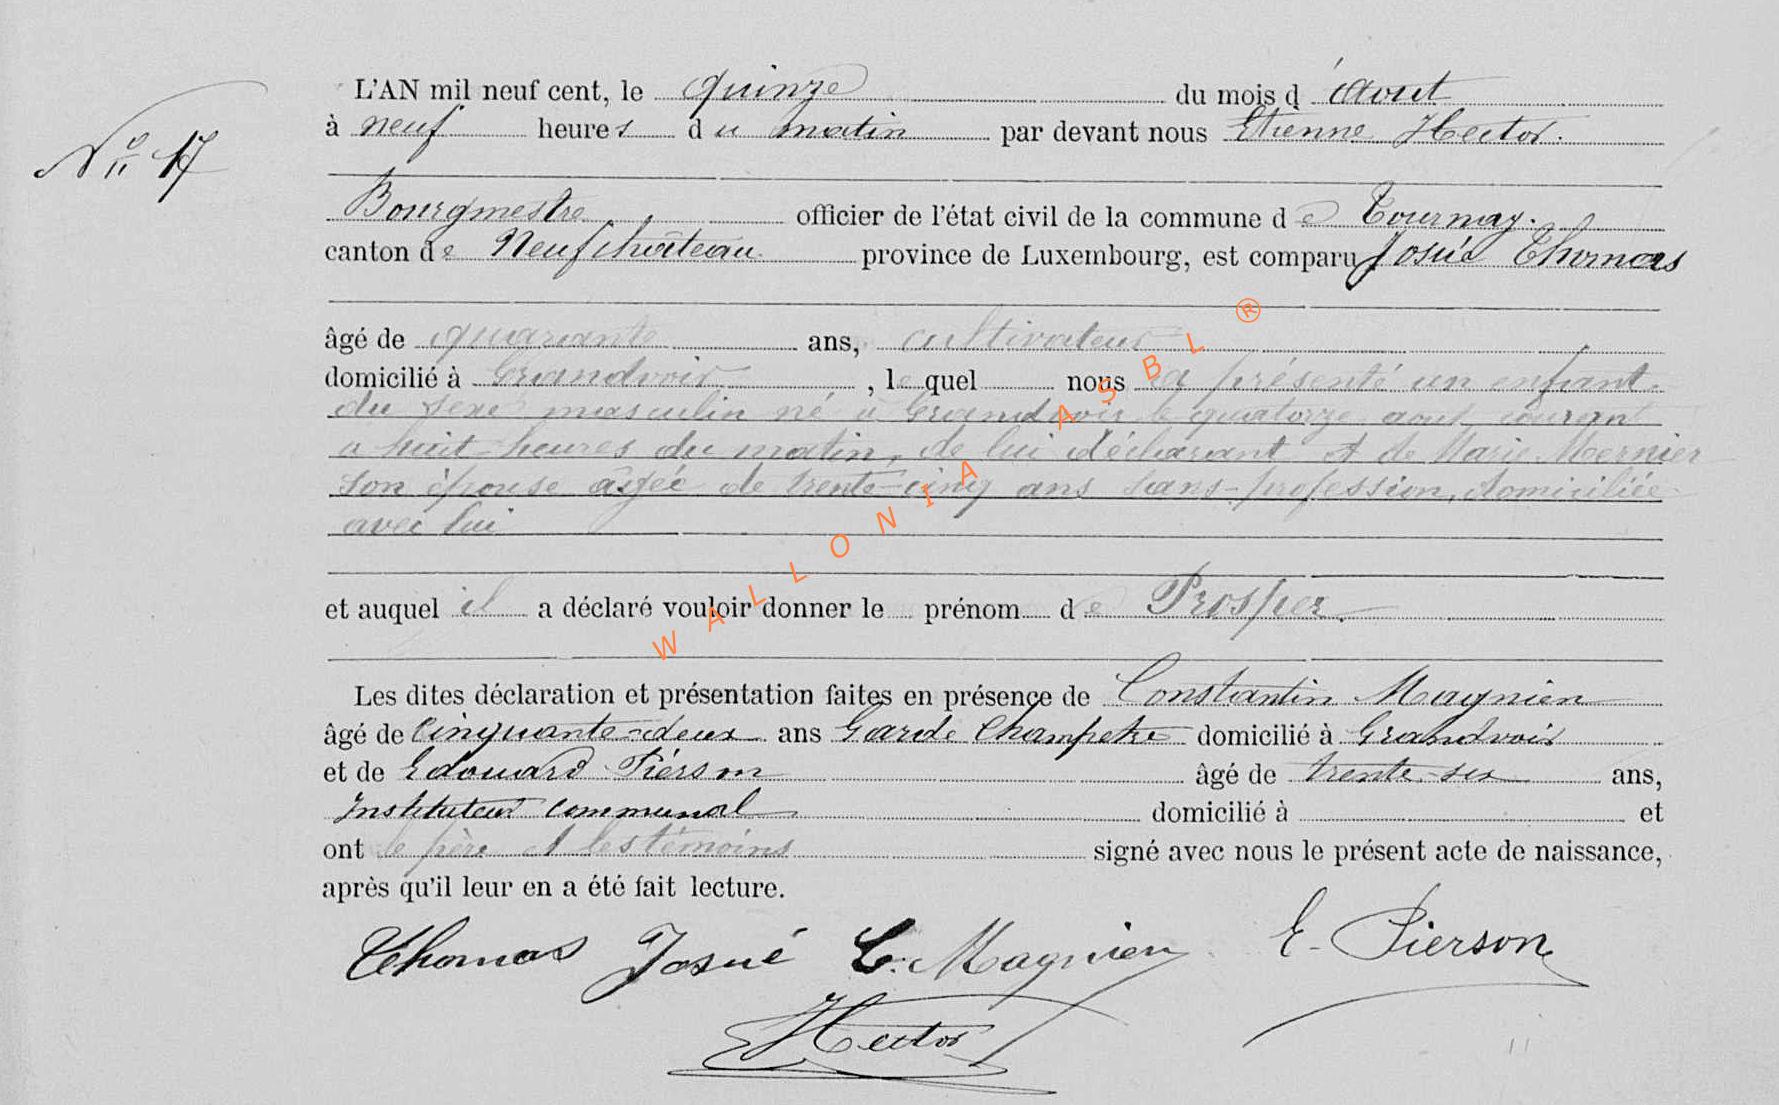 L'AN mil neuf cent, le quinze du mois d'Aout
N° 17
à neuf heures du matin par devant nous Etienne Hector.
Bourgmestre officier de l'état civil de la commune de Tournay.
canton de Neufchâteau province de Luxembourg, est comparu Josué Thomas
âgé de quarante ans, cultivateur
domicilié à Grandvoir, lequel nous a présenté un enfant
du sexe masculin né à Grandvoir le quatorze aout courant
a huit heures du matin, de lui déclarant et de Marie Mernier
son épouse âgée de trente-cinq ans sans profession, domiciliée
avec lui
et auquel il a déclaré vouloir donner le prénom de Prosper.
Les dites déclaration et présentation faites en présence de Constantin Magnien
âgé de Cinquante-deux ans Garde Champetre domicilié à Grandvoir
et de Edouard Piérson âgé de trente-six ans,
Instituteur communal domicilié à et
ont le père et les témoins signé avec nous le présent acte de naissance,
après qu'il leur en a été fait lecture.
Thomas Josué C. Magnien E. Pierson
Hector
WALLONIA ASBL ®